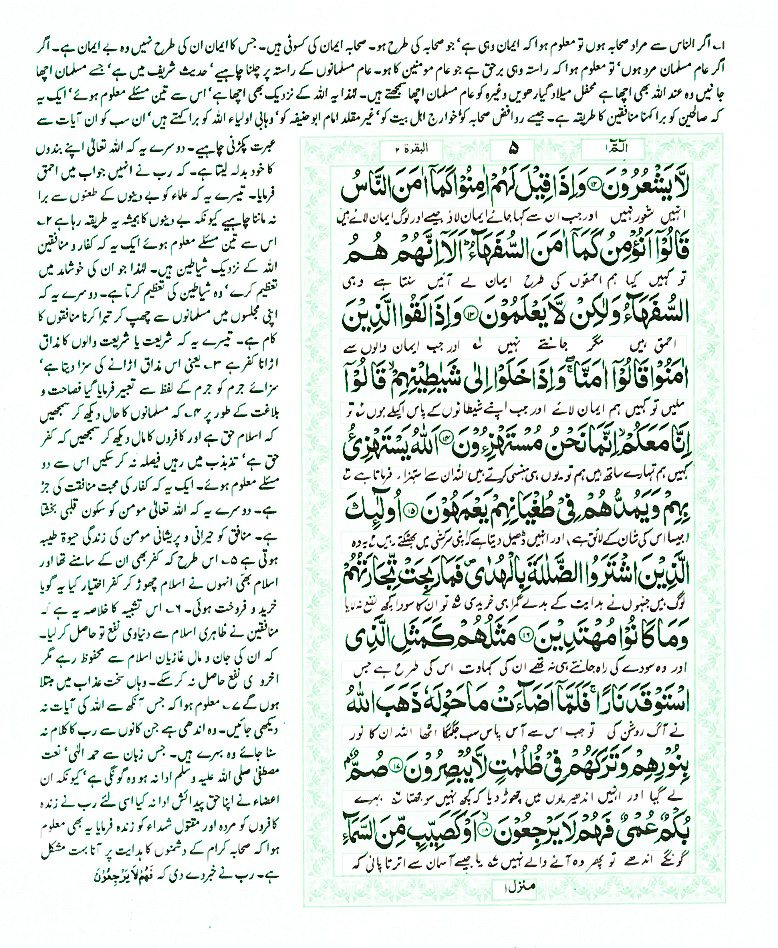 ۱؎ اگر الناس سے مراد صحابہ ہوں تو معلوم ہوا کہ ایمان وہی ہے' جو صحابہ کی طرح ہو۔ صحابہ ایمان کی کسوٹی ہیں۔ جس کا ایمان ان کی طرح نہیں وہ بے ایمان ہے۔ اگر
اگر عام مسلمان مرد ہوں' تو معلوم ہوا کہ راستہ وہی برحق ہے جو عام مومنین کا ہو۔ عام مسلمانوں کے راستہ پر چلنا چاہیے' حدیث شریف میں ہے' جسے مسلمان اچھا
جانیں وہ عند اللہ بھی اچھا ہے محفل میلاد گیارھویں وغیرہ کو عام مسلمان اچھا سمجھتے ہیں۔ لہٰذا یہ اللہ کے نزدیک بھی اچھا ہے' اس سے تین مسئلے معلوم ہوئے' ایک یہ
کہ صالحین کو برا کہنا منافقین کا طریقہ ہے۔ جیسے روافض صحابہ کو' خوارج اہل بیت کو' غیر مقلد امام ابو حنیفہ کو' وہابی اولیاء اللہ کو برا کہتے ہیں' ان سب کو ان آیات سے
عبرت پکڑنی چاہیے۔ دوسرے یہ کہ اللہ تعالیٰ اپنے بندوں
کا خود بدلہ لیتا ہے۔ کہ رب نے انہیں جواب میں احمق
فرمایا۔ تیسرے یہ کہ علماء کو بے دینوں کے طعنوں سے برا
نہ ماننا چاہیے کیونکہ بے دینوں کا ہمیشہ یہ طریقہ رہا ہے ۲؎
اس سے تین مسئلے معلوم ہوئے ایک یہ کہ کفار و منافقین
اللہ کے نزدیک شیاطین ہیں۔ لہٰذا جو ان کی خوشامد میں
تعظیم کرے' وہ شیاطین کی تعظیم کرتا ہے۔ دوسرے یہ کہ
اپنی مجلسوں میں مسلمانوں سے چھپ کر تبرا کرنا منافقوں کا
کام ہے۔ تیسرے یہ کہ شریعت یا شریعت والوں کا مذاق
اڑانا کفر ہے ۳؎ یعنی اس مذاق اڑانے کی سزا دیتا ہے'
سزائے جرم کو جرم کے لفظ سے تعبیر فرمایا گیا فصاحت و
بلاغت کے طور پر ۴؎ کہ مسلمانوں کا حال دیکھ کر سمجھیں
کہ اسلام حق ہے اور کافروں کا مال دیکھ کر سمجھیں کہ کفر
حق ہے' تذبذب میں رہیں فیصلہ نہ کر سکیں اس سے دو
مسئلے معلوم ہوئے۔ ایک یہ کہ کفار کی محبت منافقت کی جڑ
ہے۔ دوسرے یہ کہ اللہ تعالیٰ مومن کو سکون قلبی بخشتا
ہے۔ منافق کو حیرانی و پریشانی مومن کی زندگی حیوۃ طیبہ
ہوتی ہے ۵؎ اس طرح کہ کفر بھی ان کے سامنے تھا اور
اسلام بھی انہوں نے اسلام چھوڑ کر کفر اختیار کیا یہ گویا
خرید و فروخت ہوئی۔ ۶؎ اس تشبیہ کا خلاصہ یہ ہے کہ
منافقین نے ظاہری اسلام سے دنیاوی نفع تو حاصل کر لیا۔
کہ ان کی جان و مال غازیان اسلام سے محفوظ رہے مگر
اخروی نفع حاصل نہ کر سکے۔ وہاں سخت عذاب میں مبتلا
ہوں گے ۷؎ معلوم ہوا کہ جس آنکھ سے اللہ کی آیات نہ
دیکھی جائیں۔ وہ اندھی ہے جن کانوں سے رب کا کلام نہ
سنا جائے وہ بہرے ہیں۔ جس زبان سے حمد الٰہی' نعت
مصطفیٰ صلی اللہ علیہ وسلم ادا نہ ہو وہ گونگی ہے' کیونکہ ان
اعضاء نے اپنا حق پیدائش ادا نہ کیا اسی لئے رب نے زندہ
کافروں کو مردہ اور مقتول شہداء کو زندہ فرمایا یہ بھی معلوم
ہوا کہ صحابہ کرام کے دشمنوں کا ہدایت پر آنا بہت مشکل
ہے۔ رب نے خبر دے دی کہ فَهُمْ لَا يَرْجِعُوْنَ
الٓمّٓ ۱ ۵ البقرۃ ۲
لَّا يَشْعُرُوْنَ ۝۱۲ وَاِذَا قِيْلَ لَهُمْ اٰمِنُوْا كَمَاۤ اٰمَنَ النَّاسُ
انہیں شعور نہیں اور جب ان سے کہا جائے ایمان لاؤ جیسے اور لوگ ایمان لائے ہیں
قَالُوْۤا اَنُؤْمِنُ كَمَاۤ اٰمَنَ السُّفَهَآءُ ؕ اَلَاۤ اِنَّهُمْ هُمُ
تو کہیں کیا ہم احمقوں کی طرح ایمان لے آئیں سنتا ہے وہی
السُّفَهَآءُ وَلٰكِنْ لَّا يَعْلَمُوْنَ ۝۱۳ وَاِذَا لَقُوا الَّذِيْنَ
احمق ہیں مگر جانتے نہیں اور جب ایمان والوں سے
اٰمَنُوْا قَالُوْۤا اٰمَنَّا ۚۖ وَاِذَا خَلَوْا اِلٰى شَيٰطِيْنِهِمْ ۙ قَالُوْۤا
ملیں تو کہیں ہم ایمان لائے اور جب اپنے شیطانوں کے پاس اکیلے ہوں تو
اِنَّا مَعَكُمْ ۙ اِنَّمَا نَحْنُ مُسْتَهْزِءُوْنَ ۝۱۴ اَللّٰهُ يَسْتَهْزِئُ
کہیں ہم تمہارے ساتھ ہیں ہم تو یوں ہی ہنسی کرتے ہیں اللہ ان سے استہزاء فرماتا ہے
بِهِمْ وَيَمُدُّهُمْ فِيْ طُغْيَانِهِمْ يَعْمَهُوْنَ ۝۱۵ اُولٰٓئِكَ
(جیسا اس کی شان کے لائق ہے) اور انہیں ڈھیل دیتا ہے کہ اپنی سرکشی میں بھٹکتے رہیں یہ وہ
الَّذِيْنَ اشْتَرَوُا الضَّلٰلَةَ بِالْهُدٰى ۪ فَمَا رَبِحَتْ تِّجَارَتُهُمْ
لوگ ہیں جنہوں نے ہدایت کے بدلے گمراہی خریدی تو ان کا سودا کچھ نفع نہ لایا
وَمَا كَانُوْا مُهْتَدِيْنَ ۝۱۶ مَثَلُهُمْ كَمَثَلِ الَّذِى
اور وہ سودے کی راہ جانتے ہی نہ تھے ان کی کہاوت اس کی طرح ہے جس
اسْتَوْقَدَ نَارًا ۚ فَلَمَّاۤ اَضَآءَتْ مَا حَوْلَهٗ ذَهَبَ اللّٰهُ
نے آگ روشن کی تو جب اس سے آس پاس سب جگمگا اٹھا اللہ ان کا نور
بِنُوْرِهِمْ وَتَرَكَهُمْ فِيْ ظُلُمٰتٍ لَّا يُبْصِرُوْنَ ۝۱۷ صُمٌّۢ
لے گیا اور انہیں اندھیریوں میں چھوڑ دیا کہ کچھ نہیں سوجھتا بہرے
بُكْمٌ عُمْيٌ فَهُمْ لَا يَرْجِعُوْنَ ۝۱۸ اَوْ كَصَيِّبٍ مِّنَ السَّمَآءِ
گونگے اندھے تو پھر وہ آنے والے نہیں یا جیسے آسمان سے اترتا پانی کہ
منزل ۱